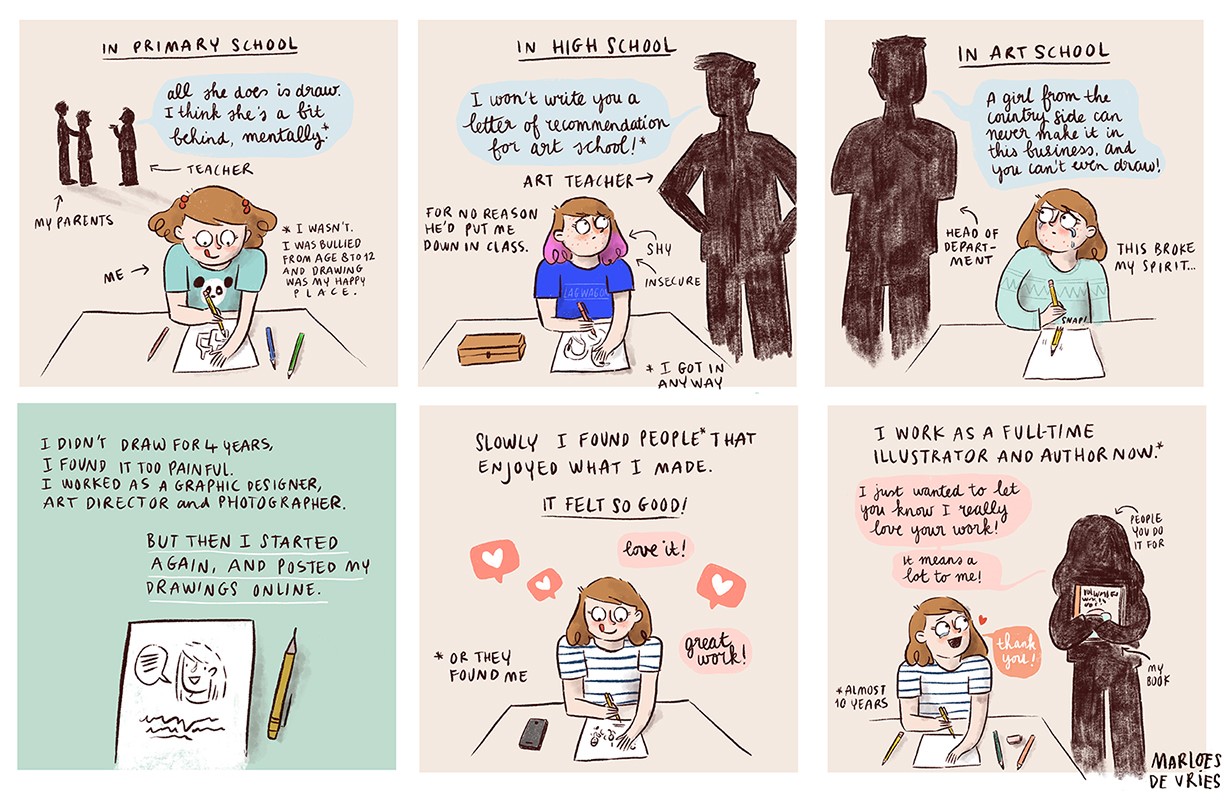 IN PRIMARY SCHOOL
all she does is draw.
I think she's a bit
behind, mentally.*
TEACHER
MY PARENTS
ME
* I WASN'T.
I WAS BULLIED
FROM AGE 8 TO 12
AND DRAWING
WAS MY HAPPY
PLACE.
IN HIGH SCHOOL
I won't write you a
letter of recommendation
for art school!*
ART TEACHER
FOR NO REASON
HE'D PUT ME
DOWN IN CLASS.
SHY
INSECURE
LAGWAGON
* I GOT IN
ANYWAY
IN ART SCHOOL
A girl from the
country side can
never make it in
this business, and
you can't even draw!
HEAD OF
DEPART-
MENT
THIS BROKE
MY SPIRIT...
SNAP!
I DIDN'T DRAW FOR 4 YEARS,
I FOUND IT TOO PAINFUL.
I WORKED AS A GRAPHIC DESIGNER,
ART DIRECTOR and PHOTOGRAPHER.
BUT THEN I STARTED
AGAIN, AND POSTED MY
DRAWINGS ONLINE.
SLOWLY I FOUND PEOPLE* THAT
ENJOYED WHAT I MADE.
IT FELT SO GOOD!
love it!
great
work!
* OR THEY
FOUND ME
I WORK AS A FULL-TIME
ILLUSTRATOR AND AUTHOR NOW.*
I just wanted to let
you know I really
love your work!
it means a
lot to me!
PEOPLE
YOU DO
IT FOR
thank
you!
MY
BOOK
*ALMOST
10 YEARS
MARLOES
DE VRIES